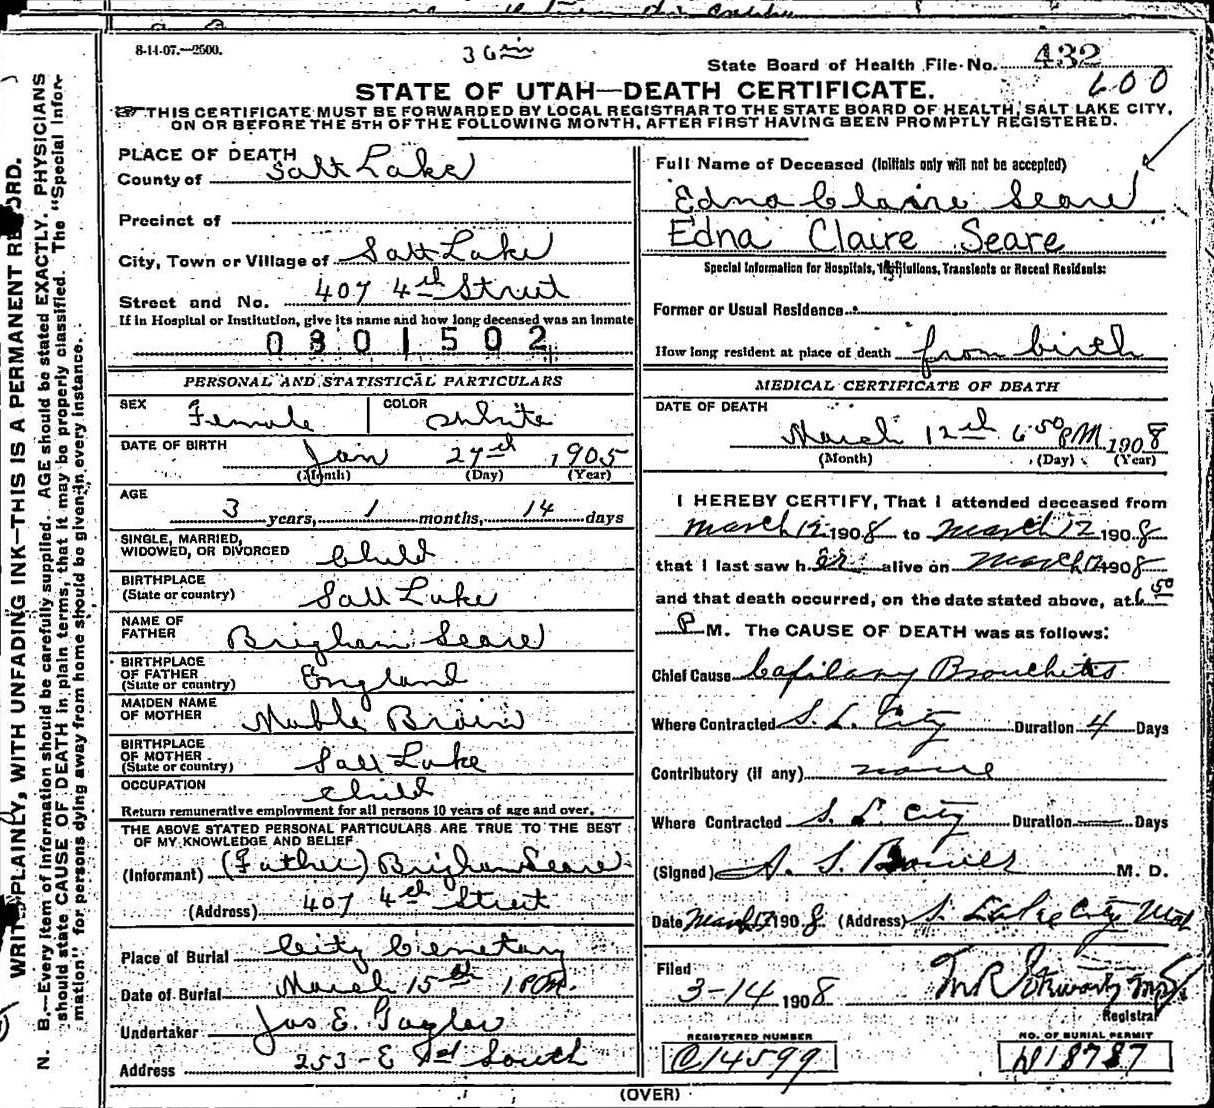 8-14-07.—2500.
State Board of Health File No. 432
600
STATE OF UTAH—DEATH CERTIFICATE.
THIS CERTIFICATE MUST BE FORWARDED BY LOCAL REGISTRAR TO THE STATE BOARD OF HEALTH, SALT LAKE CITY,
ON OR BEFORE THE 5TH OF THE FOLLOWING MONTH, AFTER FIRST HAVING BEEN PROMPTLY REGISTERED.
PLACE OF DEATH
County of Salt Lake
Precinct of
City, Town or Village of Salt Lake
Street and No. 407 4th Street
If in Hospital or Institution, give its name and how long deceased was an inmate
0301502
PERSONAL AND STATISTICAL PARTICULARS
SEX Female COLOR White
DATE OF BIRTH Jan 27th 1905
(Month) (Day) (Year)
AGE 3 years, 1 months, 14 days
SINGLE, MARRIED,
WIDOWED, OR DIVORCED Child
BIRTHPLACE
(State or country) Salt Lake
NAME OF
FATHER Brigham Seare
BIRTHPLACE
OF FATHER
(State or country) England
MAIDEN NAME
OF MOTHER Mable Brain
BIRTHPLACE
OF MOTHER
(State or country) Salt Lake
OCCUPATION Child
Return remunerative employment for all persons 10 years of age and over.
THE ABOVE STATED PERSONAL PARTICULARS ARE TRUE TO THE BEST
OF MY KNOWLEDGE AND BELIEF
(Informant) (Father) Brigham Seare
(Address) 407 4th Street
Place of Burial City Cemetary
Date of Burial March 15th 1 P.M.
Undertaker Jos E. Taylor
Address 253-E 1st South
Full Name of Deceased (Initials only will not be accepted)
Edna Claire Seare
Edna Claire Seare
Special Information for Hospitals, Institutions, Transients or Recent Residents:
Former or Usual Residence
How long resident at place of death from birth
MEDICAL CERTIFICATE OF DEATH
DATE OF DEATH
March 12th 6 50 PM 1908
(Month) (Day) (Year)
I HEREBY CERTIFY, That I attended deceased from
March 12 1908 to March 12 1908
that I last saw her alive on March 12 1908
and that death occurred, on the date stated above, at 6 50
P M. The CAUSE OF DEATH was as follows:
Chief Cause Capilary Bronchitis
Where Contracted S. L. City Duration 4 Days
Contributory (if any) none
Where Contracted S. L. City Duration — Days
(Signed) A. S. Bower M. D.
Date March 1908 (Address) S. Lake City Utah
Filed
3-14 1908
Registrar
REGISTERED NUMBER
C14599
NO. OF BURIAL PERMIT
W18787
(OVER)
WRITE PLAINLY, WITH UNFADING INK—THIS IS A PERMANENT RECORD.
N. B.—Every item of information should be carefully supplied. AGE should be stated EXACTLY. PHYSICIANS
should state CAUSE OF DEATH in plain terms, that it may be properly classified. The "Special Infor-
mation" for persons dying away from home should be given in every instance.